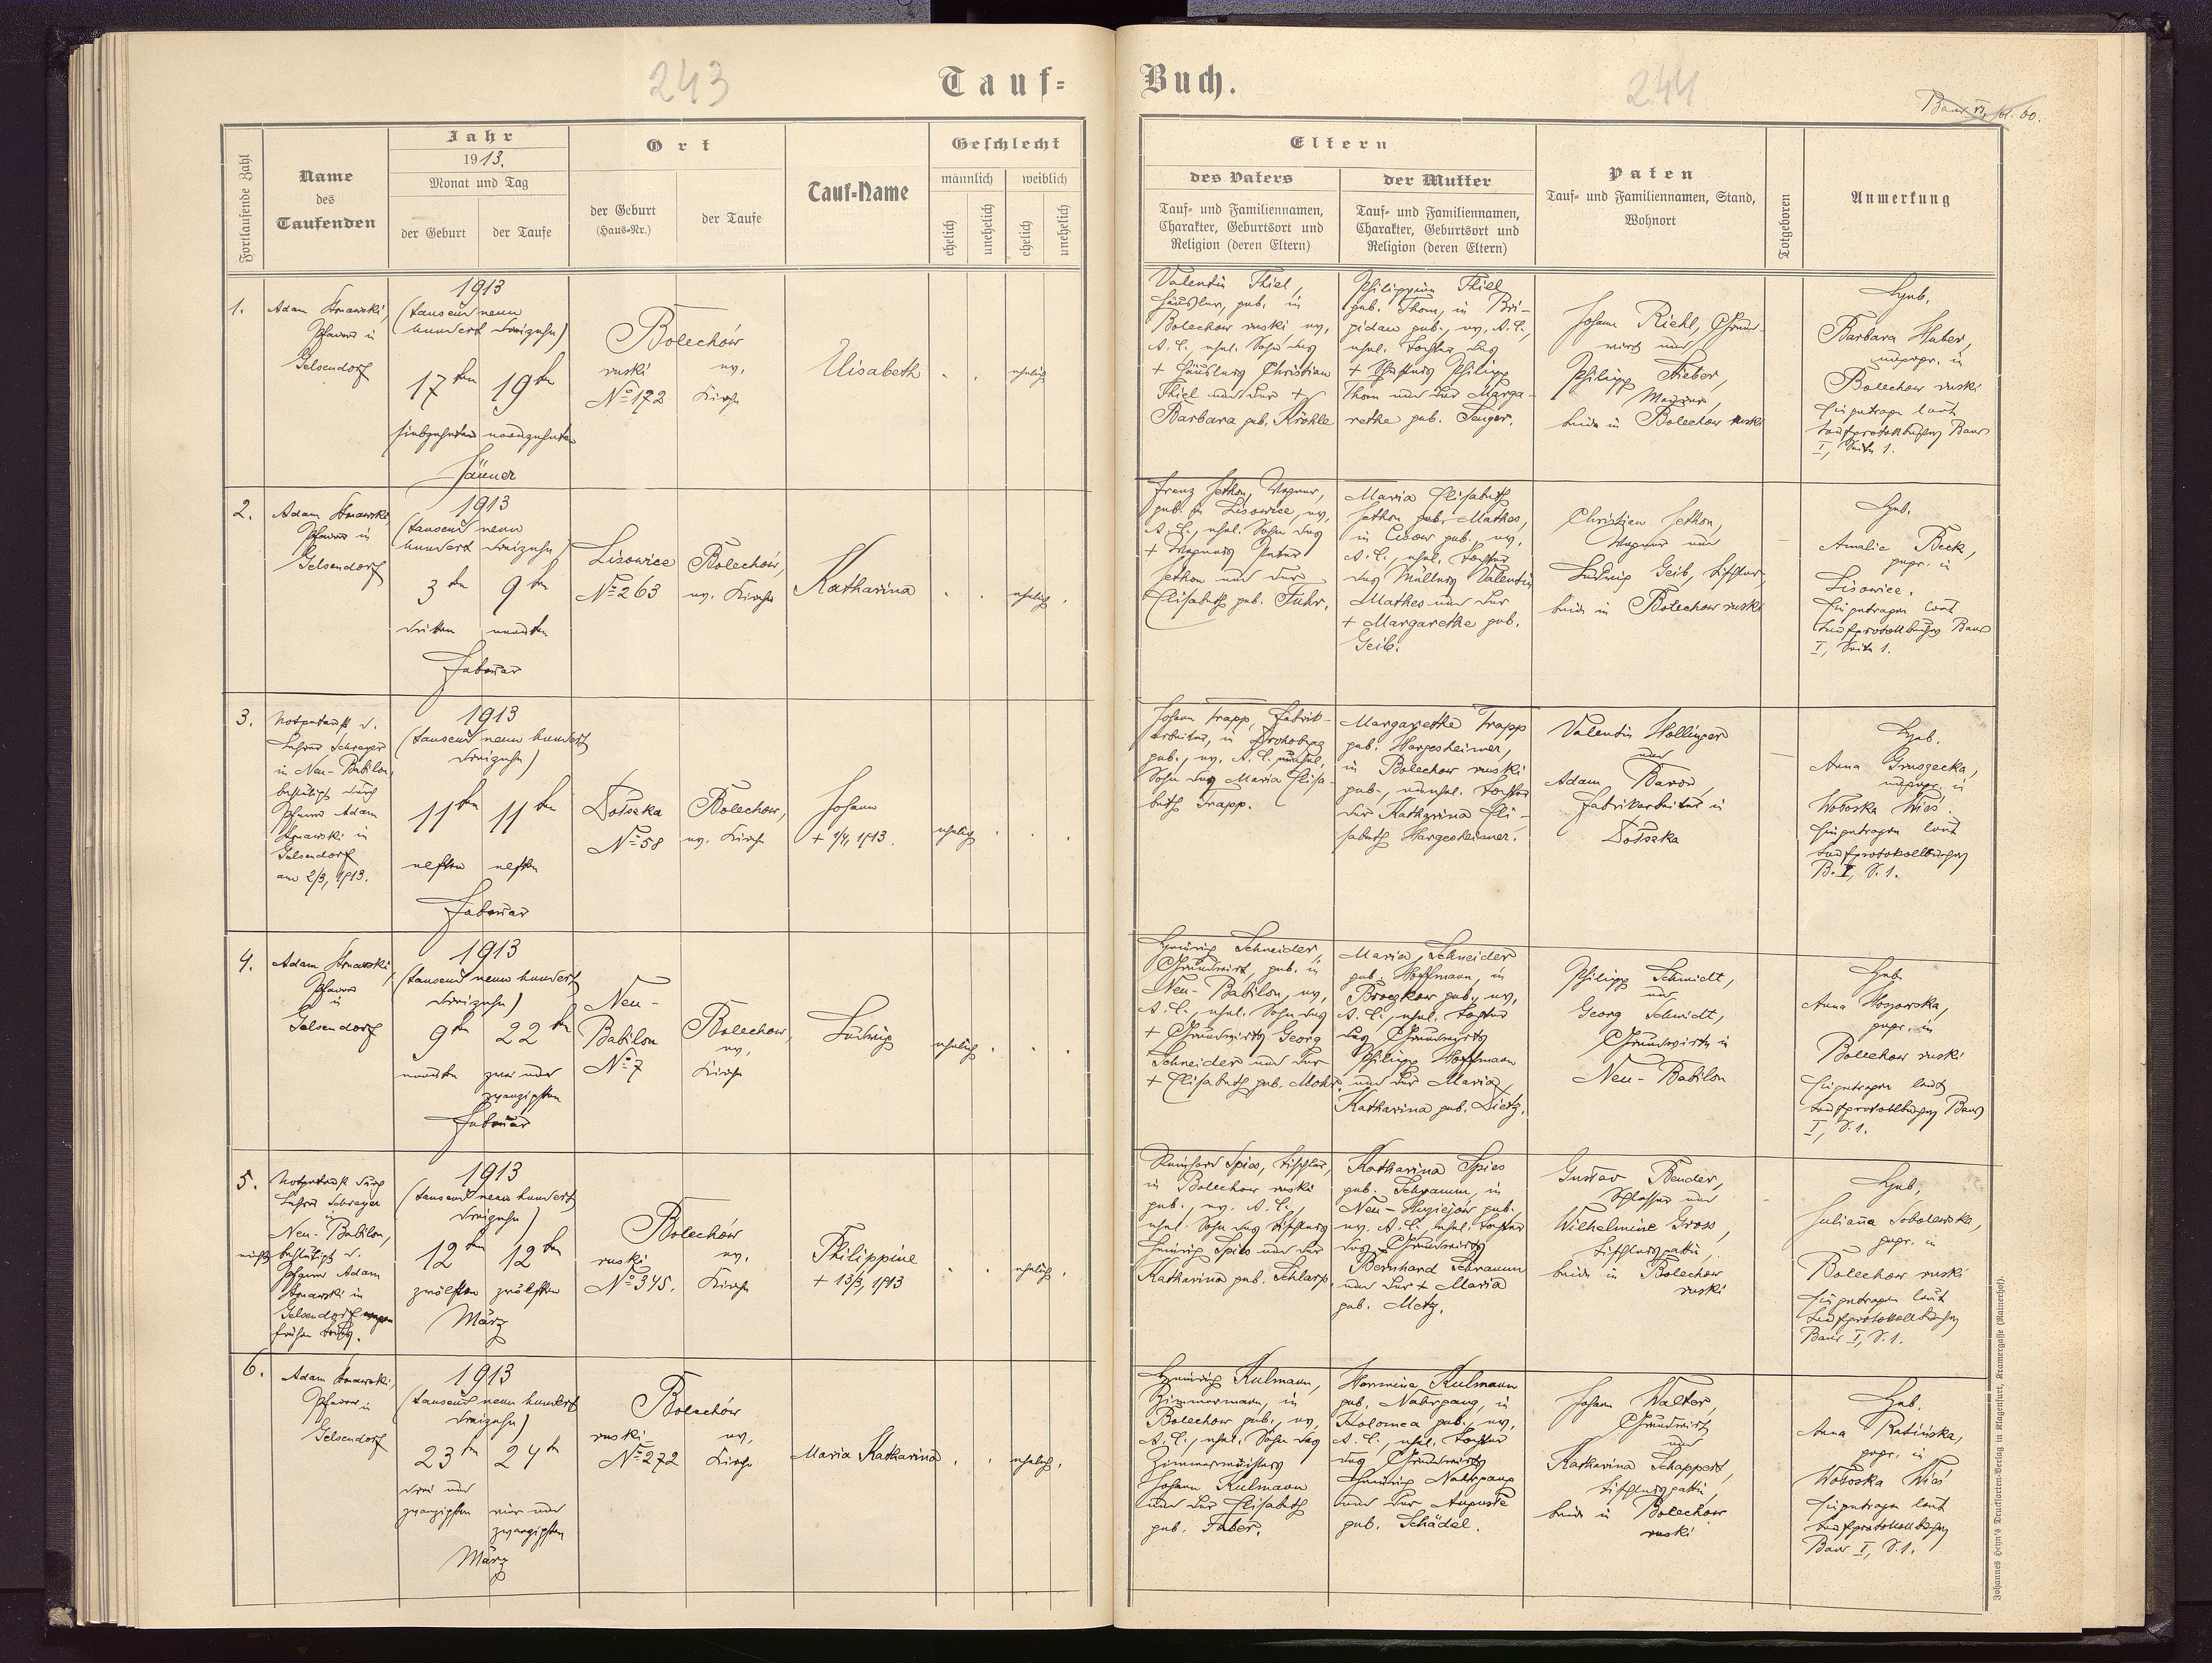 243
Tauf-
Fortlaufende Zahl
Name
des
Taufenden
Jahr
1913.
Monat und Tag
der Geburt
der Taufe
Ort
der Geburt
(Haus-Nr.)
der Taufe
Tauf-Name
Geschlecht
männlich
weiblich
ehelich
unehelich
ehelich
unehelich
1.
Pfarrer in
Gelsendorf
1913
(tausend neun
hundert dreizehn)
17ten 19ten
siebzehnten neunzehnten
Jänner
Bolechów
ruski
No 172
ev.
Kirche
Elisabeth
ehelich
2.
Pfarrer in
Gelsendorf
1913
(tausend neun
hundert dreizehn)
3ten 9ten
dritten neunten
Februar
Lisowice
No 263
Bolechów,
ev. Kirche
Katharina
ehelich
3.
Notgetauft d.
Lehrer Schreyer
in Neu-Babilon,
bestätigt durch
Pfarrer Adam
in
Gelsendorf
am 2/3, 1913.
1913
(tausend neun hundert
dreizehn)
11ten 11ten
elften elften
Februar
No 58
Bolechow,
ev. Kirche
Johann
+ 1/4, 1913.
ehelich
4.
Pfarrer
in
Gelsendorf
1913
(tausend neun hundert
dreizehn)
9ten 22ten
neunten zwei und
zwanzigsten
Februar
Neu-
Babilon
No 7
Bolechow,
ev.
Kirche
Ludwig
ehelich
5.
Notgetauft durch
Lehrer Schreyer
in
Neu-Babilon,
nicht bestätigt d.
Pfarrer Adam
in
Gelsendorf wegen
frühen Todes.
1913
(tausend neun hundert
dreizehn)
12ten 12ten
zwölften zwölften
März
Bolechów
ruski
No 345.
ev.
Kirche
Philippine
+ 13/3, 1913
ehelich
6.
Pfarrer in
Gelsendorf
1913
(tausend neun hundert
dreizehn)
23ten 24ten
drei und
zwanzigsten
vier und
zwanzigsten
März
Bolechów
ruski
No 272
ev.
Kirche
Maria Katharina
ehelich
Buch.
244
Eltern
des Vaters
der Mutter
Tauf- und Familiennamen,
Charakter, Geburtsort und
Religion (deren Eltern)
Tauf- und Familiennamen,
Charakter, Geburtsort und
Religion (deren Eltern)
Paten
Tauf- und Familiennamen, Stand,
Wohnort
Totgeboren
Anmerkung
Valentin Thiel,
Häusler, geb. in
Bolechow ruski ev.
A. C. ehel. Sohn des
+ Häuslers Christian
Thiel und der +
Barbara geb. Kröhle
Philippine Thiel
geb. Thom, in Bri-
gidau geb., ev. A. C.,
ehel. Tochter des
+ Philipp
Thom und der Marga-
rethe geb. Senger.
Johann Riehl, Grund-
wirt und
Philipp
Maurer,
beide in Bolechow ruski
Heb.
Barbara Huber,
ungepr. in
Bolechow ruski
Eingetragen laut
Taufprotokollbuches Band
I, Seite 1.
Franz Jethon, Wagner,
geb. in Lisowice, ev.
A. C., ehel. Sohn des
+ Wagners Peter
Jethon und der
Elisabeth geb. Fuhr.
Maria Elisabeth
Jethon geb. Mathes,
in Cisow geb., ev.
A. C., ehel. Tochter
des Müllers Valentin
Mathes und der
+ Margarethe geb.
Geib.
Christian Jethon,
Wagner und
Ludwig Geib, Tischler,
beide in Bolechow ruski
Heb.
Amalie Beck,
gepr. in
Lisowice.
Eingetragen laut
Taufprotokollbuches Band
I, Seite 1.
Johann Trapp, Fabrik-
arbeiter, in
geb., ev. A. C. unehel.
Sohn des Maria Elisa-
beth Trapp.
Margarethe Trapp
geb. Hargesheimer,
in Bolechow ruski
geb., unehel. Tochter
der Katharina Eli-
sabeth Hargesheimer.
Valentin Hollinger
und
Adam
Fabrikarbeiter in
Heb.
Anna Gruszecka,
ungepr. in
Wołoska Wieś.
Eingetragen laut
Taufprotokollbuches
B. I, S. 1.
Heinrich Schneider,
Grundwirt, geb. in
Neu-Babilon, ev.
A. C., ehel. Sohn des
+ Grundwirts Georg
Schneider und der
+ Elisabeth geb. Mohr.
Maria Schneider
geb. Hoffmann, in
Broczkow geb., ev.
A. C., ehel. Tochter
des Grundwirts
Philipp Hoffmann
und der Maria
Katharina geb. Dietz.
Philipp Schmidt,
und
Georg Schmidt,
Grundwirte in
Neu-Babilon
Heb.
gepr. in
Bolechow ruski
Eingetragen laut
Taufprotokollbuches Band
I, S. 1.
Reinhard Spies, Tischler,
in Bolechow ruski
geb., ev. A. C.,
ehel. Sohn des Tischlers
Heinrich Spies und der
Katharina geb. Schlarp.
Katharina Spies
geb. Schramm, in
Neu-Mizejów geb.
ev. A. C. ehel. Tochter
des Grundwirts
Bernhard Schramm
und der + Maria
geb. Metz.
Gustav Bender,
Schlosser und
Wilhelmine Gross,
Tischlersgattin,
beide in Bolechow
ruski
Heb.
Julianna Sobolewska,
gepr. in
Bolechow ruski
Eingetragen laut
Taufprotokollbuches
Band I, S. 1.
Heinrich Kulmann,
Zimmermann, in
Bolechow geb., ev.
A. C., ehel. Sohn des
Zimmermeisters
Johann Kulmann
und der Elisabeth
geb. Faber.
Hermine Kulmann
geb. Nahrgang, in
Kolomea geb., ev.
A. C., ehel. Tochter
des Grundwirts
Heinrich Nahrgang
und der Auguste
geb. Schädel.
Johann Walter,
Grundwirt
und
Katharina Schappert,
Tischlersgattin,
beide in Bolechow
ruski
Heb.
Anna Ratińska,
gepr. in
Wołoska Wieś
Eingetragen laut
Taufprotokollbuches
Band I, S. 1.
Johannes Heyn's Drucksorten-Verlag in Klagenfurt, Kramergasse (Rainerhof).